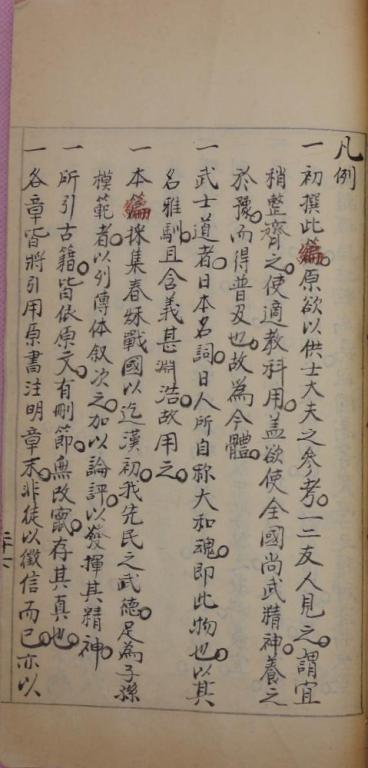 凡例
一 初撰此編。原欲以供士大夫之參考。一二友人見之。謂宜
稍整齊之。使適教科用。蓋欲使全國尚武精神。養之
於豫。而得普及也。故為今體。
一 武士道者。日本名詞。日人所自稱大和魂。即此物也。以其
名雅馴。且含義甚淵浩。故用之。
一 本編採集春秋戰國以迄漢初。我先民之武德。足為子孫
模範者。以列傳体叙次之。加以論評。以發揮其精神。
一 所引古籍。皆依原文。有刪節。無改竄。存其真也。
一 各章皆將引用原書注明章末。非徒以徵信而已。亦以